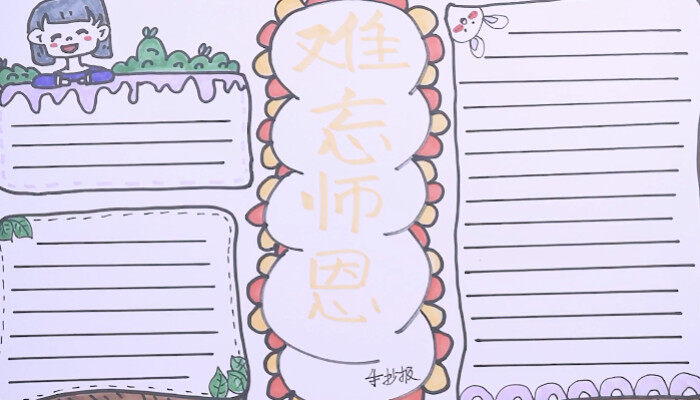 难
忘
师
恩
手抄报